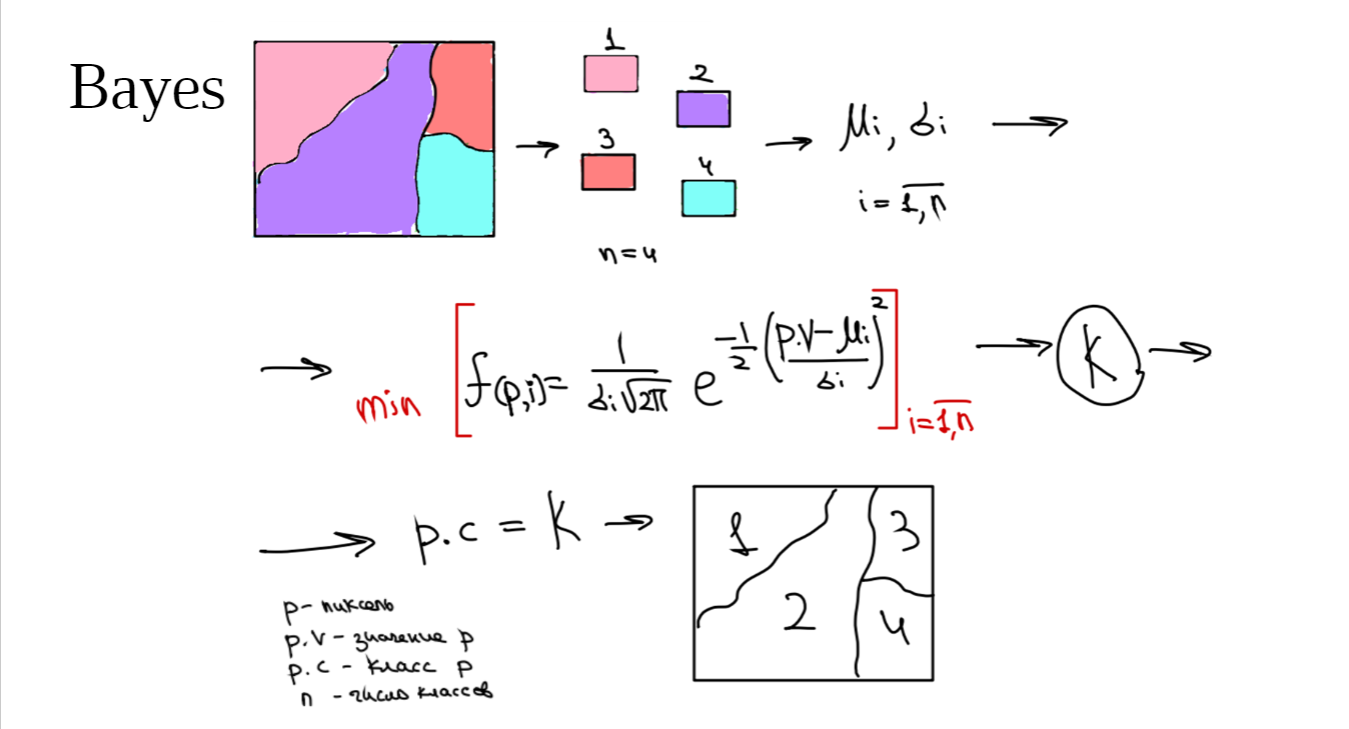 Bayes
1
2
3
4
n=4
μi, σi →
i=1,n
→ min [f(p,i)= 1/(σi√2π) e^(-1/2 ((p.v-μi)/σi)^2)] i=1,n → K →
→ p.c = K →
1
3
2
4
p- пиксель
p.v - значение p
p.c - класс p
n - число классов